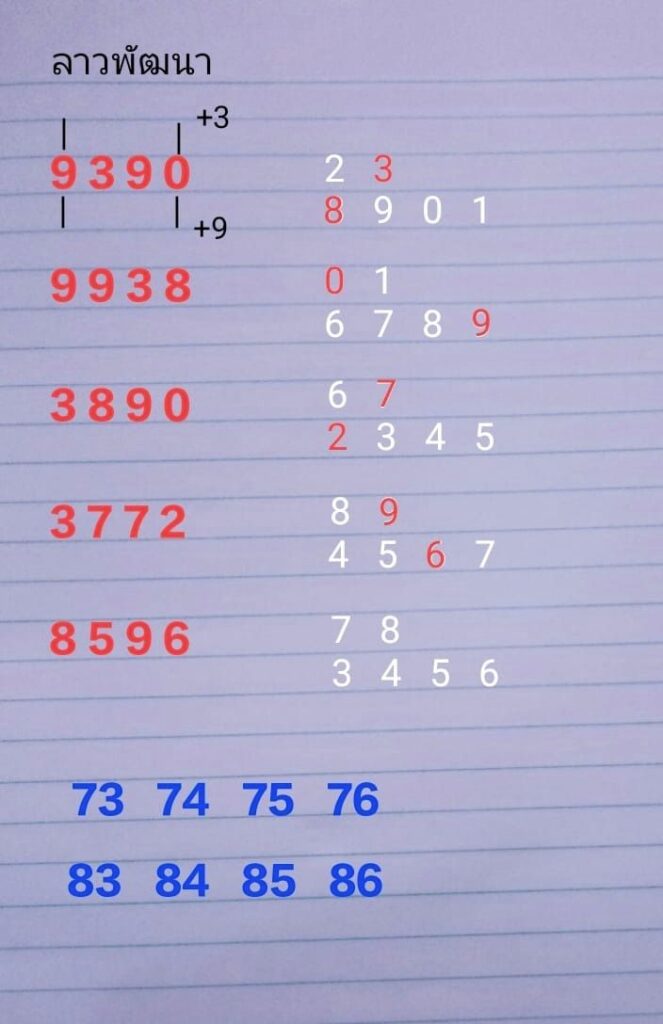 ลาวพัฒนา
+3
9390 2 3
8 9 0 1
+9
9938 0 1
6 7 8 9
3890 6 7
2 3 4 5
3772 8 9
4 5 6 7
8596 7 8
3 4 5 6
73 74 75 76
83 84 85 86